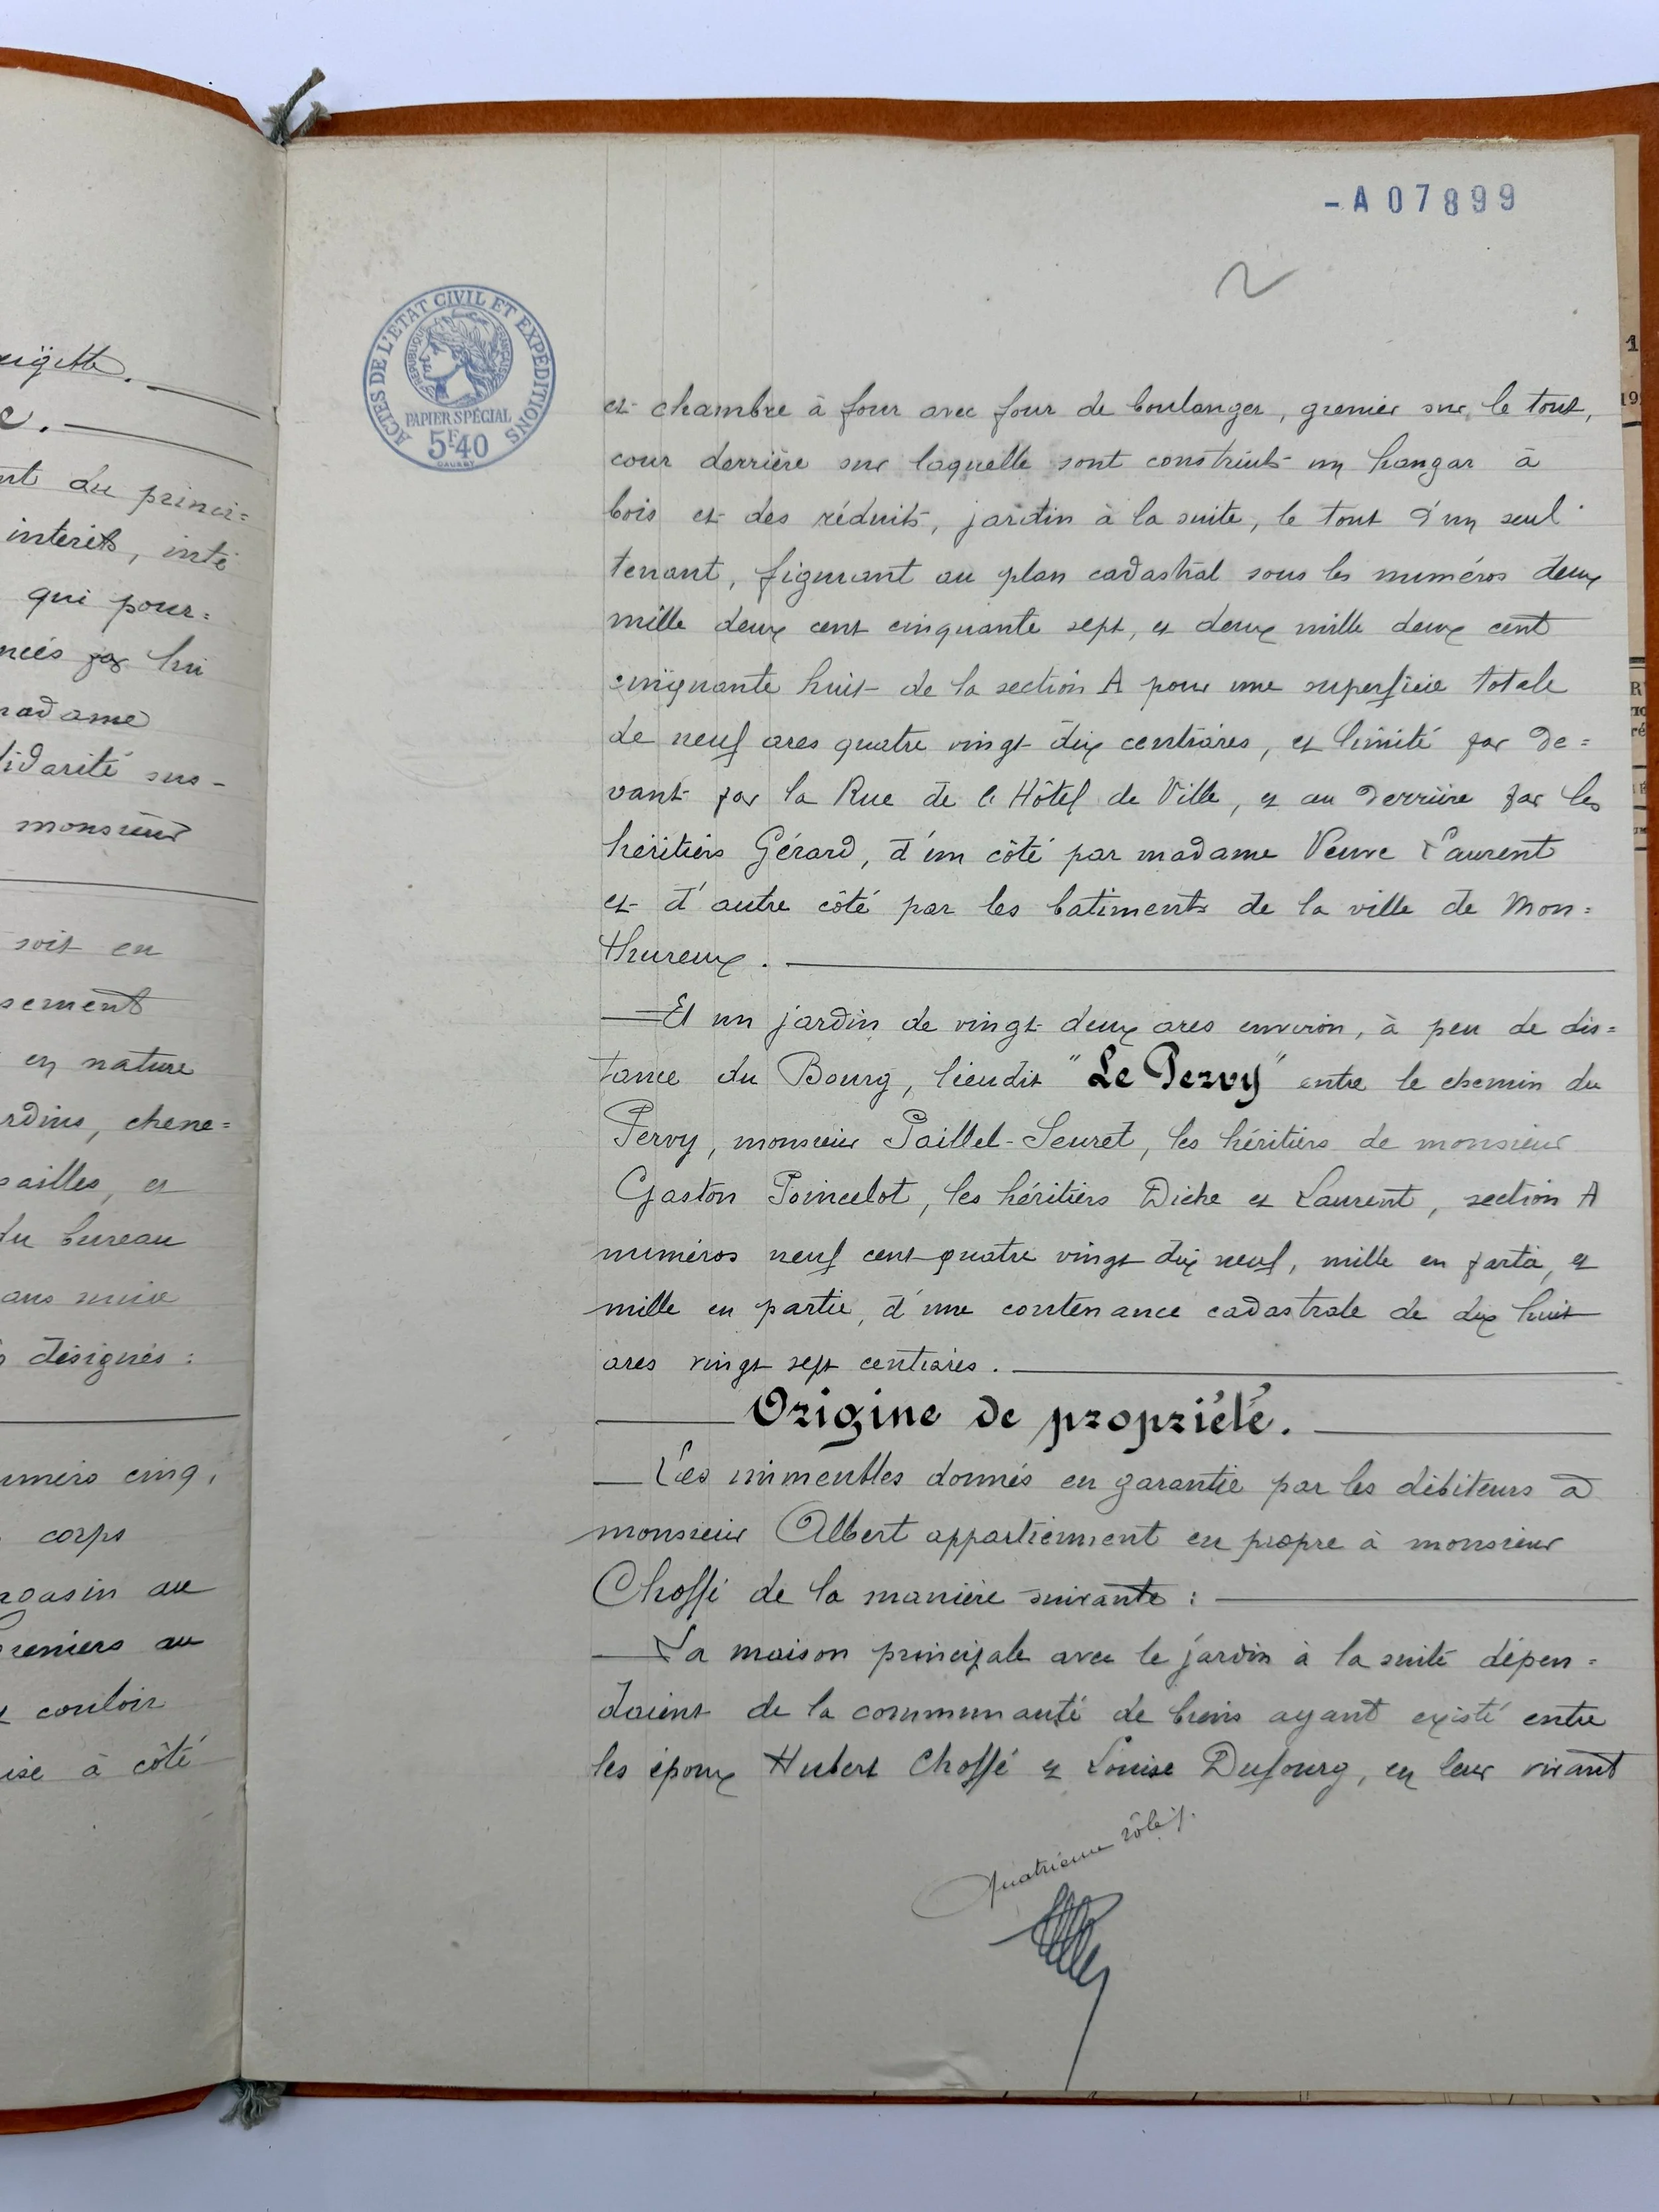 eigitte.
c.
nt du princi=
intérêts, inté
qui pour=
ncés par lui
madame
lidarité sus-
monsieur
soit en
sement
en nature
rdins, chene=
sailles, et
du bureau
ans mixe
s désignés :
uméro cinq,
corps
agasin au
Greniers au
et couloir
ise à côté
- A 07899
2
ACTES DE L'ETAT CIVIL ET EXPÉDITIONS
REPUBLIQUE FRANÇAISE
PAPIER SPÉCIAL
5F40
et chambre à four avec four de boulanger, grenier sur le tout,
cour derrière sur laquelle sont construits un hangar à
bois et des réduits, jardin à la suite, le tout d'un seul
tenant, figurant au plan cadastral sous les numéros deux
mille deux cent cinquante sept, et deux mille deux cent
cinquante huit de la section A pour une superficie totale
de neuf ares quatre vingt dix centiares, et limité par de=
vant par la Rue de l'Hôtel de Ville, et au derrière par les
héritiers Gérard, d'un côté par madame Veuve Laurent
et d'autre côté par les batiments de la ville de Mon=
thureux.
Et un jardin de vingt deux ares environ, à peu de dis=
tance du Bourg, lieudit "Le Pervy" entre le chemin du
Pervy, monsieur Paillel-Seuret, les héritiers de monsieur
Gaston Poincelot, les héritiers Diche et Laurent, section A
numéros neuf cent quatre vingt dix neuf, mille en partie, et
mille en partie, d'une contenance cadastrale de dix huit
ares vingt sept centiares.
Origine de propriété.
Les immeubles donnés en garantie par les débiteurs à
monsieur Albert appartiennent en propre à monsieur
Choffé de la manière suivante :
La maison principale avec le jardin à la suite dépen=
daient de la communauté de biens ayant existé entre
les époux Hubert Choffé et Louise Dufourg, en leur vivant
Quatrième rôle